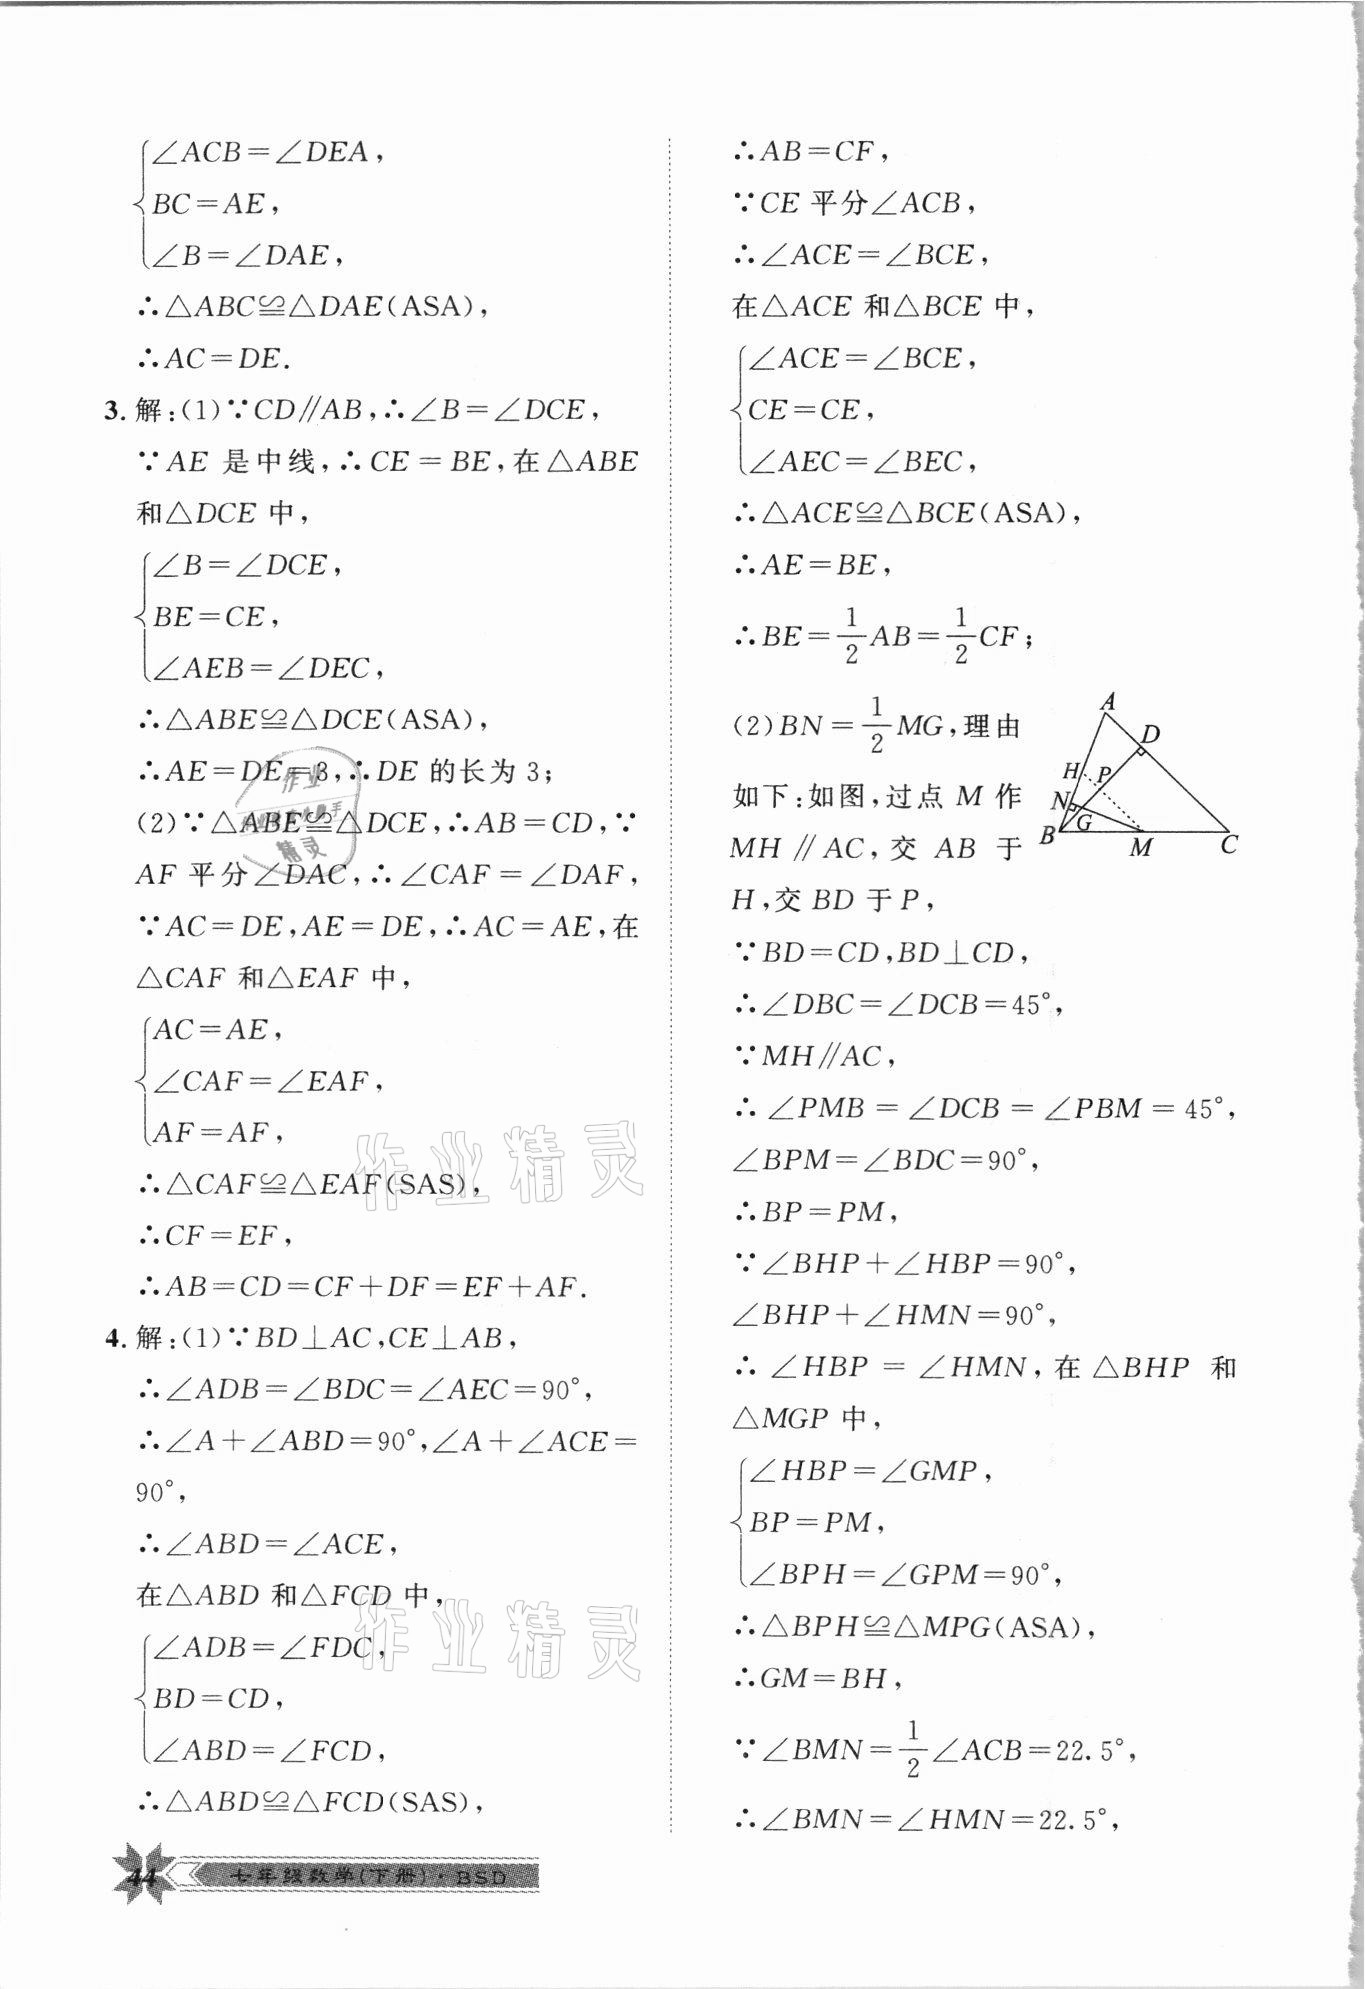 ∠ACB=∠DEA,
BC=AE,
∠B=∠DAE,
∴△ABC≌△DAE(ASA),
∴AC=DE.
3. 解:(1)∵CD∥AB,∴∠B=∠DCE,
∵AE 是中线,∴CE=BE,在△ABE
和△DCE 中,
∠B=∠DCE,
BE=CE,
∠AEB=∠DEC,
∴△ABE≌△DCE(ASA),
∴AE=DE=3,∴DE 的长为 3;
(2)∵△ABE≌△DCE,∴AB=CD,∵
AF 平分∠DAC,∴∠CAF=∠DAF,
∵AC=DE,AE=DE,∴AC=AE,在
△CAF 和△EAF 中,
AC=AE,
∠CAF=∠EAF,
AF=AF,
∴△CAF≌△EAF(SAS),
∴CF=EF,
∴AB=CD=CF+DF=EF+AF.
4. 解:(1)∵BD⊥AC,CE⊥AB,
∴∠ADB=∠BDC=∠AEC=90°,
∴∠A+∠ABD=90°,∠A+∠ACE=
90°,
∴∠ABD=∠ACE,
在△ABD 和△FCD 中,
∠ADB=∠FDC,
BD=CD,
∠ABD=∠FCD,
∴△ABD≌△FCD(SAS),
44 七年级数学(下册)·BSD
∴AB=CF,
∵CE 平分∠ACB,
∴∠ACE=∠BCE,
在△ACE 和△BCE 中,
∠ACE=∠BCE,
CE=CE,
∠AEC=∠BEC,
∴△ACE≌△BCE(ASA),
∴AE=BE,
∴BE=1/2AB=1/2CF;
(2)BN=1/2MG,理由
如下:如图,过点 M 作
MH∥AC,交 AB 于
H,交 BD 于 P,
A
D
H P
N
B G M C
∵BD=CD,BD⊥CD,
∴∠DBC=∠DCB=45°,
∵MH∥AC,
∴∠PMB=∠DCB=∠PBM=45°,
∠BPM=∠BDC=90°,
∴BP=PM,
∵∠BHP+∠HBP=90°,
∠BHP+∠HMN=90°,
∴∠HBP=∠HMN,在△BHP 和
△MGP 中,
∠HBP=∠GMP,
BP=PM,
∠BPH=∠GPM=90°,
∴△BPH≌△MPG(ASA),
∴GM=BH,
∵∠BMN=1/2∠ACB=22.5°,
∴∠BMN=∠HMN=22.5°,
作业精灵
作业精灵
作业
精灵